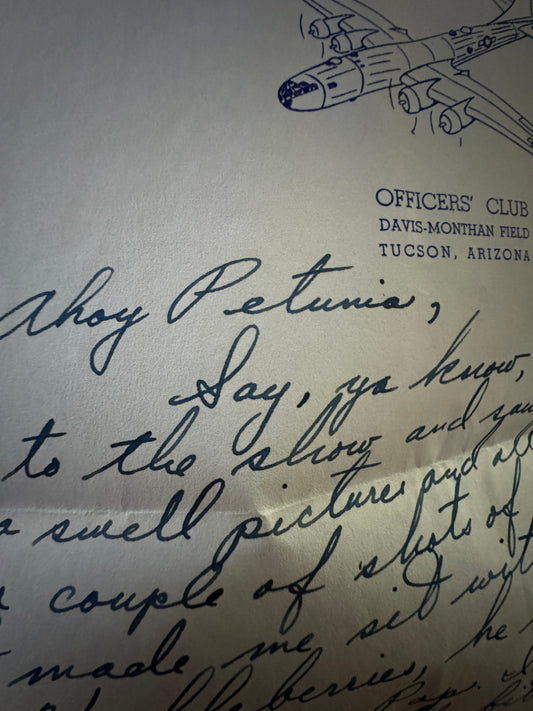 OFFICERS' CLUB
DAVIS-MONTHAN FIELD
TUCSON, ARIZONA
Ahoy Petunia,
Say, ya know,
to the show and saw
a swell pictures and all
couple of shots of
made me sit wit
berries, he
Pap. I